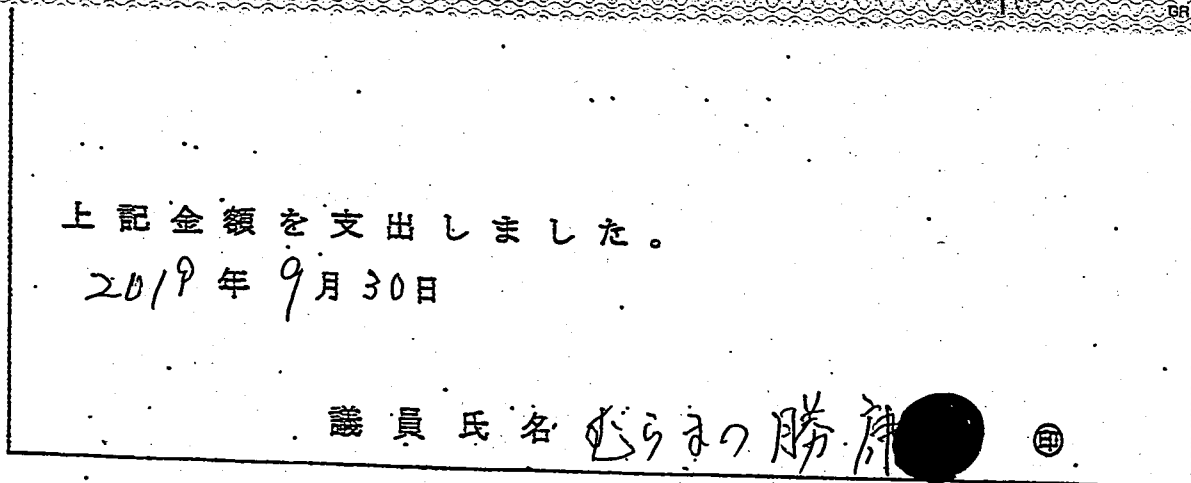 GR
上記金額を支出しました。
2019年 9月30日
議員氏名 むらまつ 勝康 ㊞